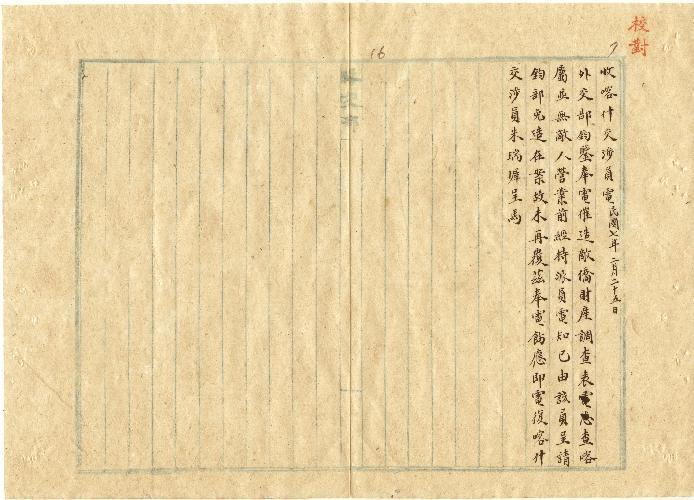 校對
7
16
收喀什交涉員電民國七年二月二十五日
外交部鈞鑒奉電催造敵僑財產調查表電悉查喀
屬並無敵人營業前經特派員電知已由該員呈請
鈞部免造在案故未再覆茲奉電飭應即電復喀什
交涉員朱瑞墀呈馬